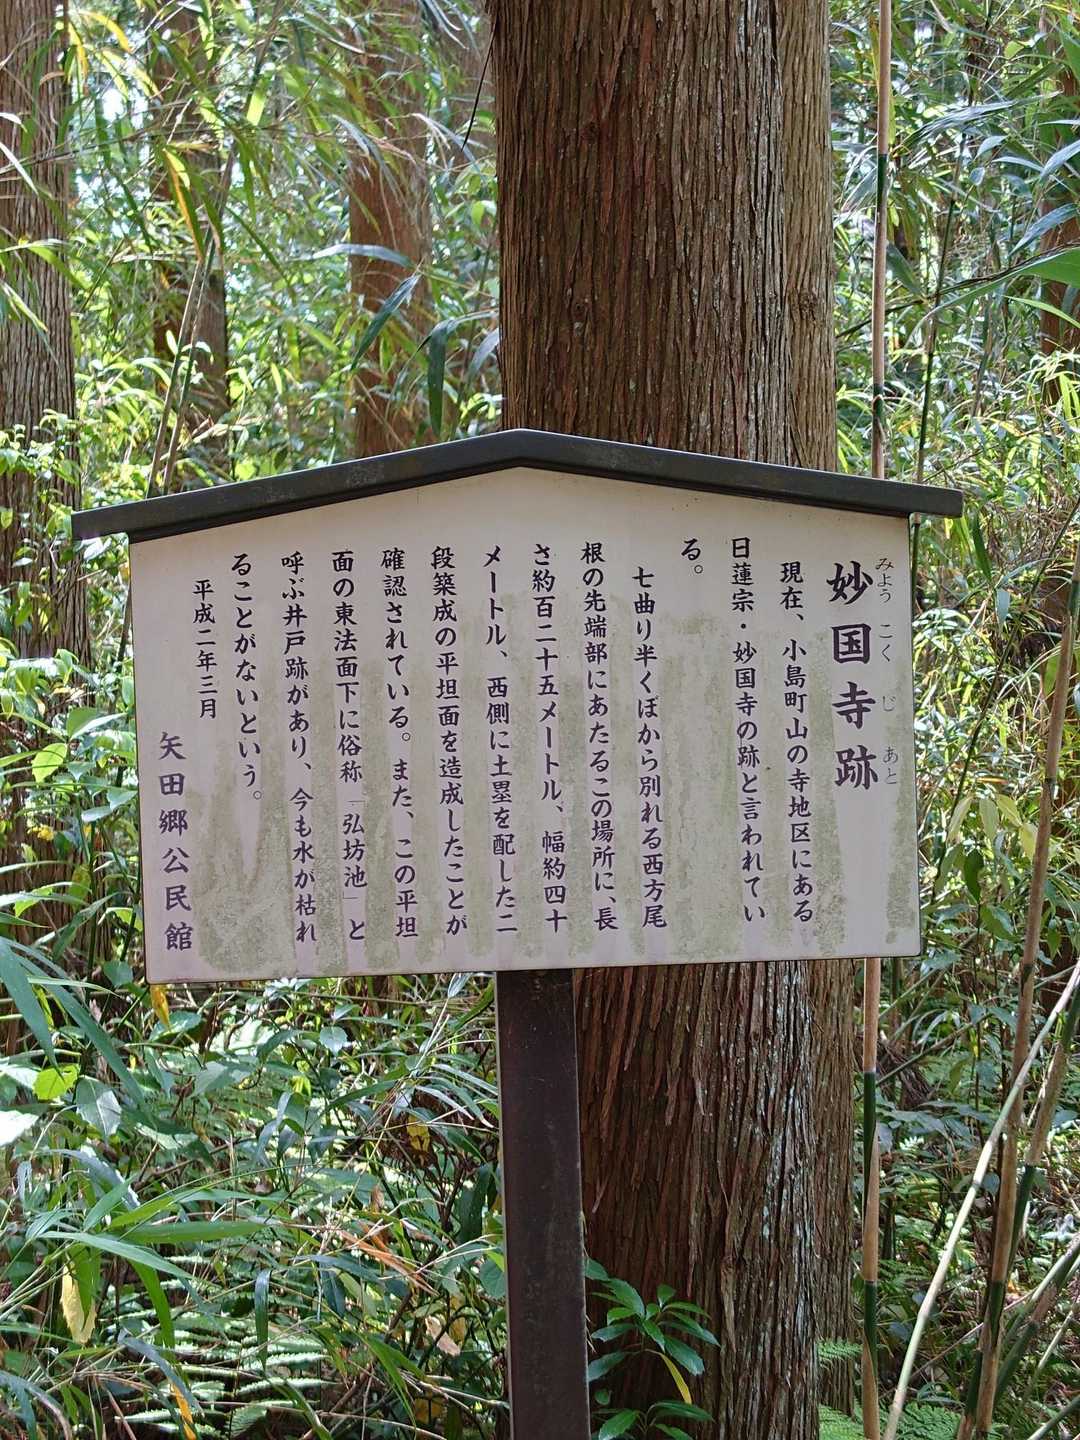 妙国寺跡
みょう こく じ あと
現在、小島町山の寺地区にある
日蓮宗・妙国寺の跡と言われてい
る。
七曲り半くぼから別れる西方尾
根の先端部にあたるこの場所に、長
さ約百二十五メートル、幅約四十
メートル、西側に土塁を配した二
段築成の平坦面を造成したことが
確認されている。また、この平坦
面の東法面下に俗称「弘坊池」と
呼ぶ井戸跡があり、今も水が枯れ
ることがないという。
平成二年三月
矢田郷公民館